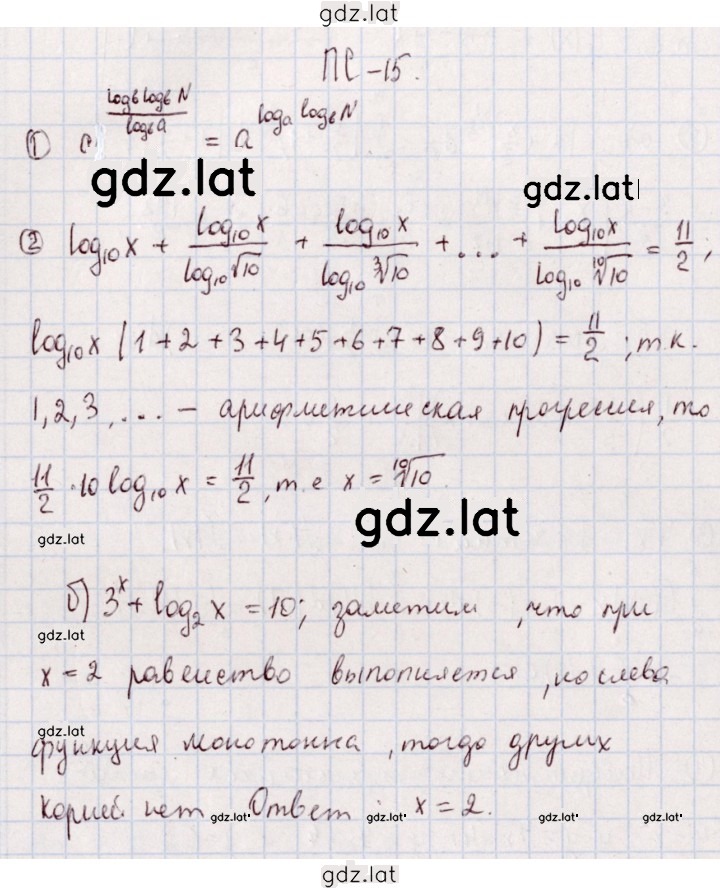 gdz.lat
ПС-15.
① a^{\frac{log_b log_b N}{log_b a}} = a^{log_a log_b N}
gdz.lat gdz.lat
② log_{10} x + \frac{log_{10} x}{log_{10} \sqrt{10}} + \frac{log_{10} x}{log_{10} \sqrt[3]{10}} + ... + \frac{log_{10} x}{log_{10} \sqrt[10]{10}} = \frac{11}{2};
log_{10} x (1+2+3+4+5+6+7+8+9+10) = \frac{11}{2}; т.к.
1, 2, 3, ... – арифметическая прогрессия, то
\frac{11}{2} · 10 log_{10} x = \frac{11}{2}, т.е x = \sqrt[10]{10}.
gdz.lat
gdz.lat
б) 3^x + log_2 x = 10; заметим, что при
gdz.lat
x = 2 равенство выполняется, но слева
gdz.lat
функция монотонна, тогда других
корней нет Ответ: x = 2.
gdz.lat gdz.lat gdz.lat gdz.lat
gdz.lat